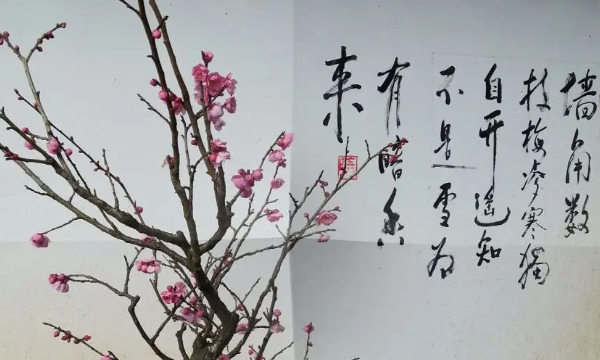 墙角数
枝梅凌寒独
自开遥知
不是雪为
有暗香
来